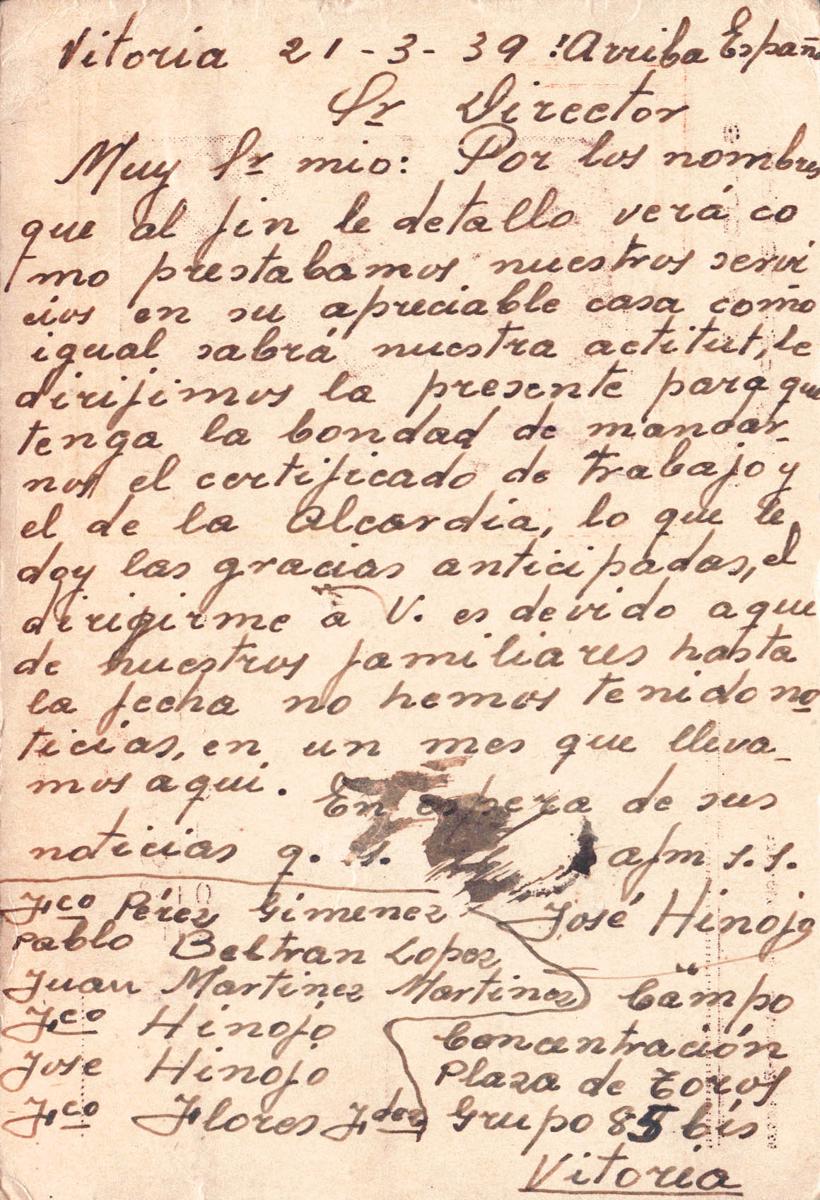 Vitoria 21-3-39 ¡Arriba España
Sr Director
Muy Sr mio: Por los nombres
que al fin le detallo verá co
mo prestabamos nuestros servi
cios en su apreciable casa como
igual sabrá nuestra actitut, le
dirijimos la presente para que
tenga la bondad de mandar-
nos el certificado de trabajo y
el de la Alcardia, lo que le
doy las gracias anticipadas, el
dirigirme a V. es devido a que
de nuestros familiares hasta
la fecha no hemos tenido no
ticias, en un mes que lleva-
mos aqui. En espera de sus
noticias q. s. afm s.s.
José Hinojo
Fco Pérez Gimenez
Pablo Beltran Lopez
Juan Martinez Martinez
Fco Hinojo
Jose Hinojo
Fco Flores Fdez
Campo
Concentración
Plaza de Toros
Grupo 85 bis
Vitoria